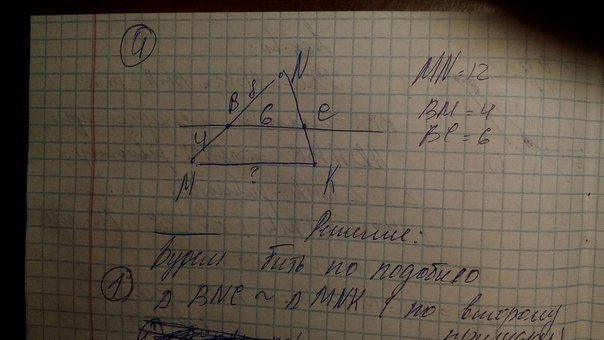 4
N
8
B 6 C
4
M ? K
MN=12
BM=4
BC=6
Решение:
Будем бить по подобию
1) Δ BNC ~ Δ MNK ( по второму